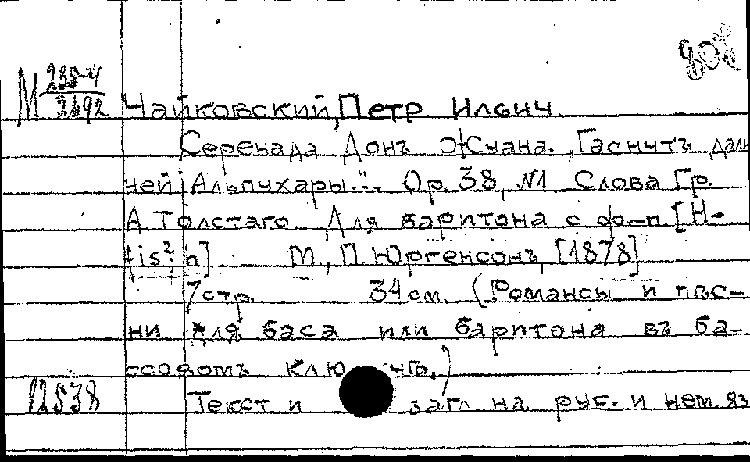 М 280-4
2692
Чайковский, Петр Ильич
Серенада Донъ Жуана. „Гаснутъ даль
ней Альпухары..." Op. 38, №1 Слова Гр.
А. Толстаго Для баритона с ф-п [H-
fis²; h] М., П. Юргенсонъ, [1878]
7 стр. 34 см. (Романсы и пѣс-
ни для баса или баритона въ ба-
совомъ ключѣ.)
12838 Текст и загл. на рус. и нем. яз